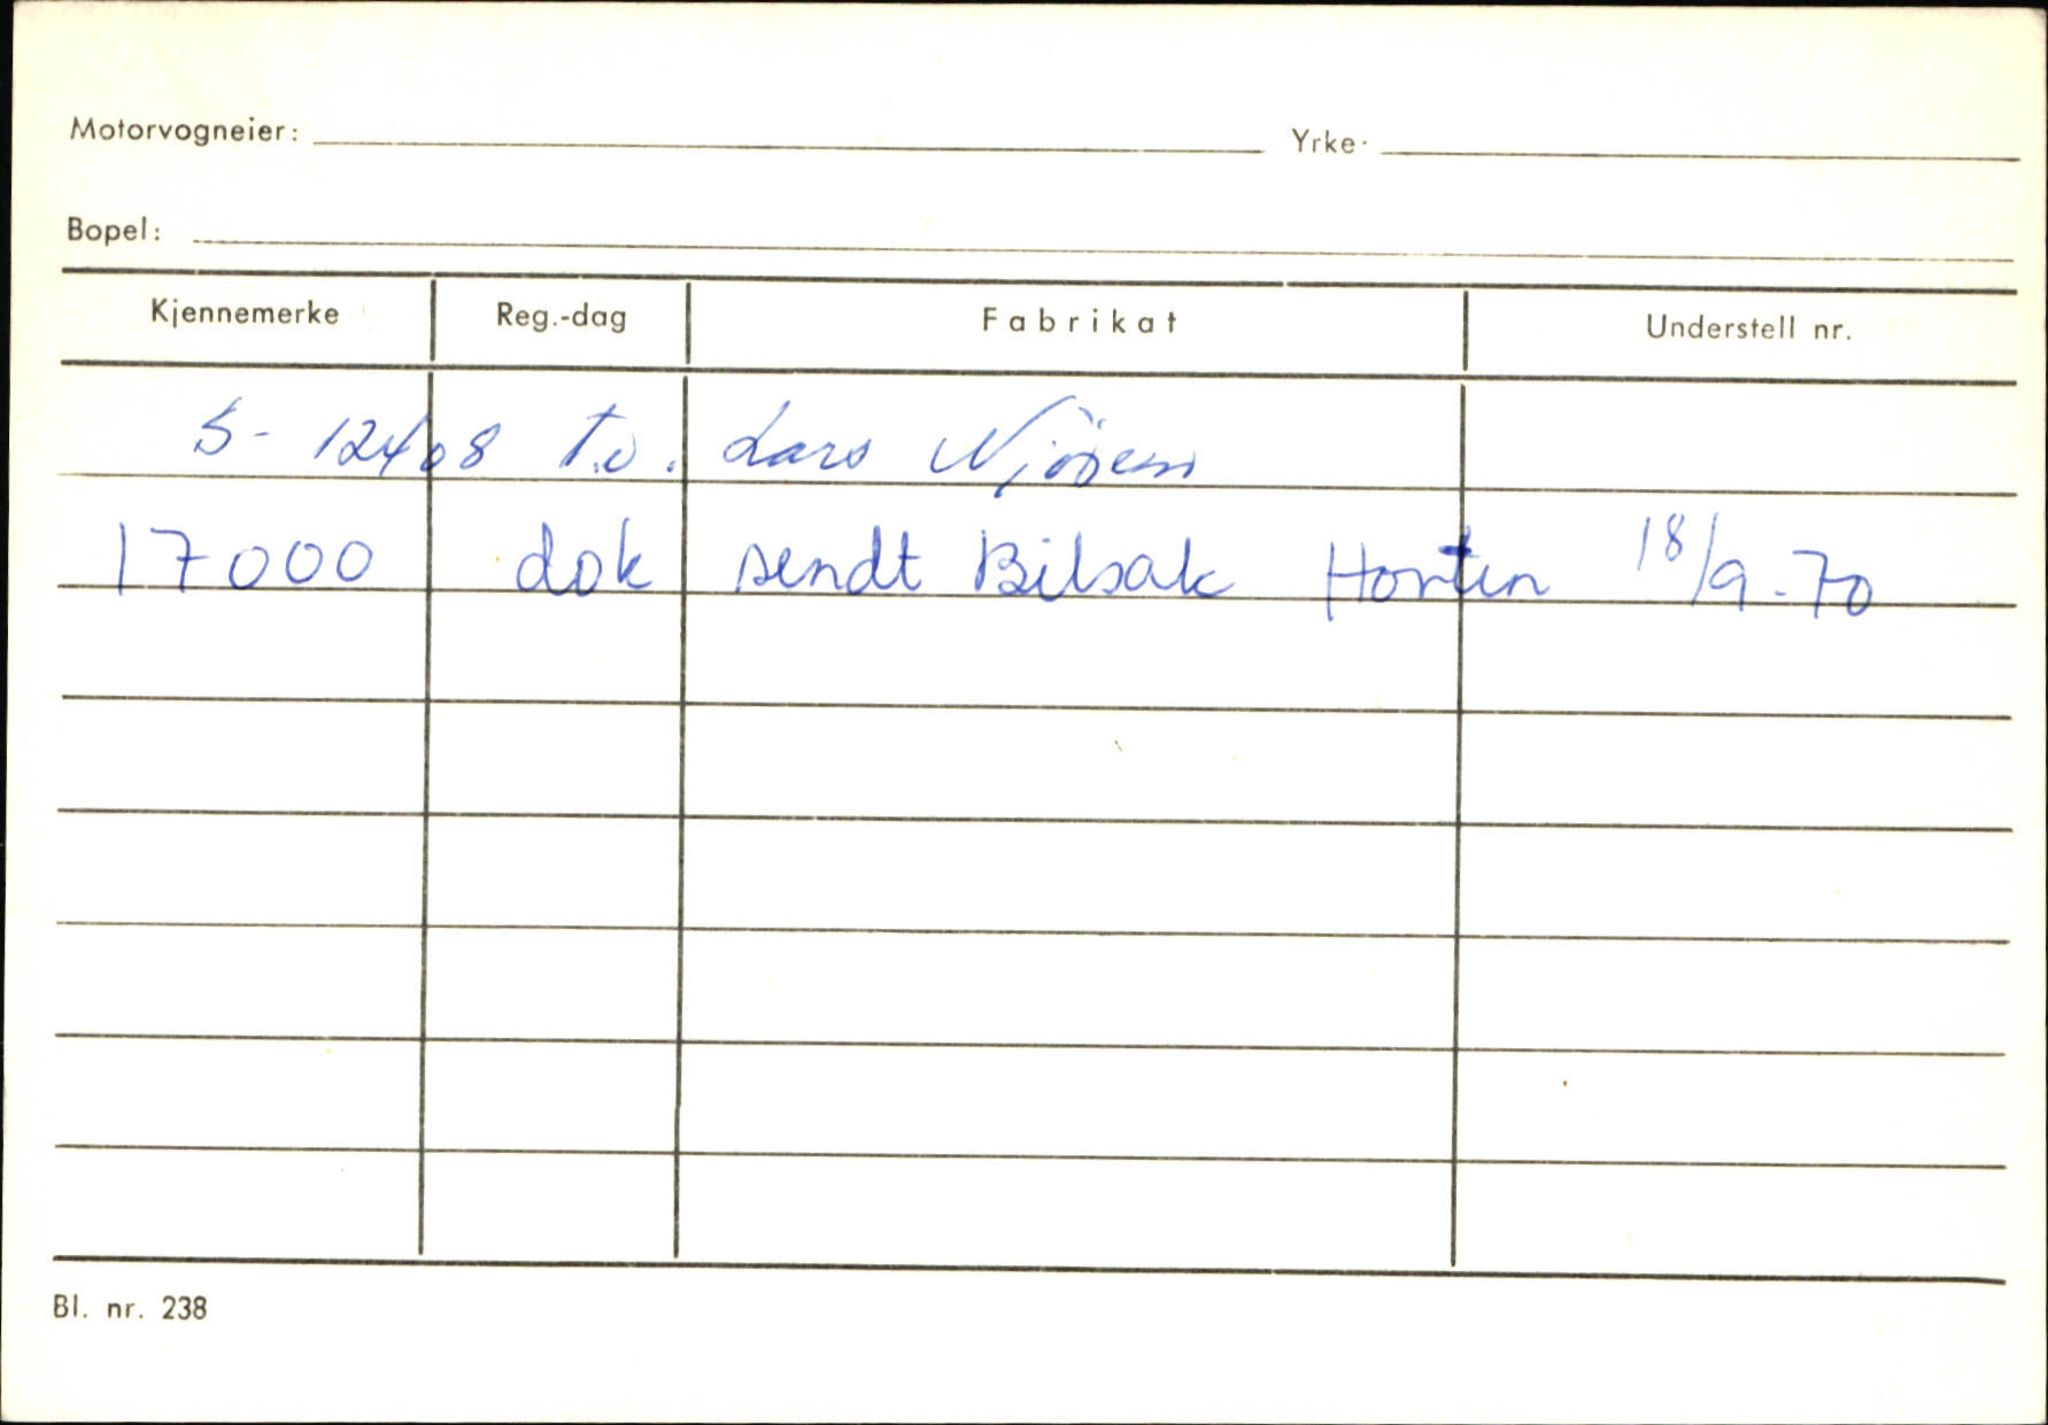 Motorvogneier: Yrke.
Bopel:
Kjennemerke Reg.-dag Fabrikat Understell nr.
S- 12408 T.o. Lars
17000 dok sendt Bilsak Horten 18/9-70
Bl. nr. 238